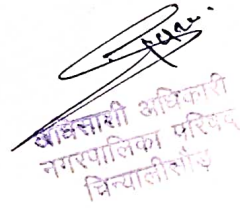 अधिशासी अधिकारी
नगरपालिका परिषद
चिन्यालीसौड़